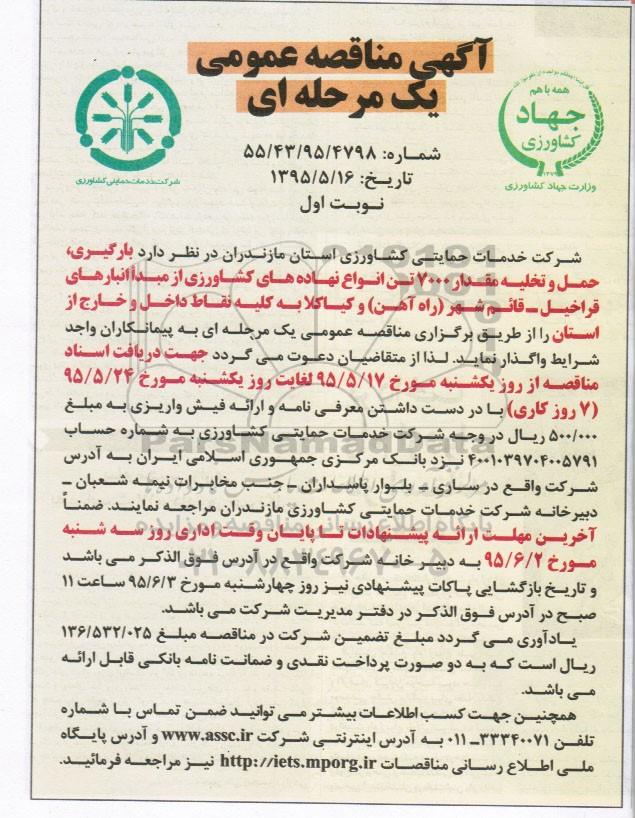 آگهی مناقصه عمومی
یک مرحله ای
همه با هم
جهاد
کشاورزی
وزارت جهاد کشاورزی
شرکت خدمات حمایتی کشاورزی
شماره: ۵۵/۴۳/۹۵/۴۷۹۸
تاریخ: ۱۳۹۵/۵/۱۶
نوبت اول
شرکت خدمات حمایتی کشاورزی استان مازندران در نظر دارد بارگیری،
حمل و تخلیه مقدار ۷۰۰۰ تن انواع نهاده های کشاورزی از مبدأ انبارهای
قراخیل ـ قائم شهر (راه آهن) و کیاکلا به کلیه نقاط داخل و خارج از
استان را از طریق برگزاری مناقصه عمومی یک مرحله ای به پیمانکاران واجد
شرایط واگذار نماید. لذا از متقاضیان دعوت می گردد جهت دریافت اسناد
مناقصه از روز یکشنبه مورخ ۹۵/۵/۱۷ لغایت روز یکشنبه مورخ ۹۵/۵/۲۴
(۷ روز کاری) با در دست داشتن معرفی نامه و ارائه فیش واریزی به مبلغ
۵۰۰/۰۰۰ ریال در وجه شرکت خدمات حمایتی کشاورزی به شماره حساب
۴۰۰۱۰۳۹۷۰۴۰۰۵۷۹۱ نزد بانک مرکزی جمهوری اسلامی ایران به آدرس
شرکت واقع در ساری ـ بلوار پاسداران ـ جنب مخابرات نیمه شعبان ـ
دبیرخانه شرکت خدمات حمایتی کشاورزی مازندران مراجعه نمایند. ضمناً
آخرین مهلت ارائه پیشنهادات تا پایان وقت اداری روز سه شنبه
مورخ ۹۵/۶/۲ به دبیر خانه شرکت واقع در آدرس فوق الذکر می باشد
و تاریخ بازگشایی پاکات پیشنهادی نیز روز چهارشنبه مورخ ۹۵/۶/۳ ساعت ۱۱
صبح در آدرس فوق الذکر در دفتر مدیریت شرکت می باشد.
یادآوری می گردد مبلغ تضمین شرکت در مناقصه مبلغ ۱۳۶/۵۳۲/۰۲۵
ریال است که به دو صورت پرداخت نقدی و ضمانت نامه بانکی قابل ارائه
می باشد.
همچنین جهت کسب اطلاعات بیشتر می توانید ضمن تماس با شماره
تلفن ۳۳۳۴۰۰۷۱ـ۰۱۱ به آدرس اینترنتی شرکت www.assc.ir و آدرس پایگاه
ملی اطلاع رسانی مناقصات http://iets.mporg.ir نیز مراجعه فرمائید.
ParsNamadData
پایگاه اطلاع رسانی مناقصه و مزایده
۰۲۱-۸۸۳۴۹۶۷۰-۵